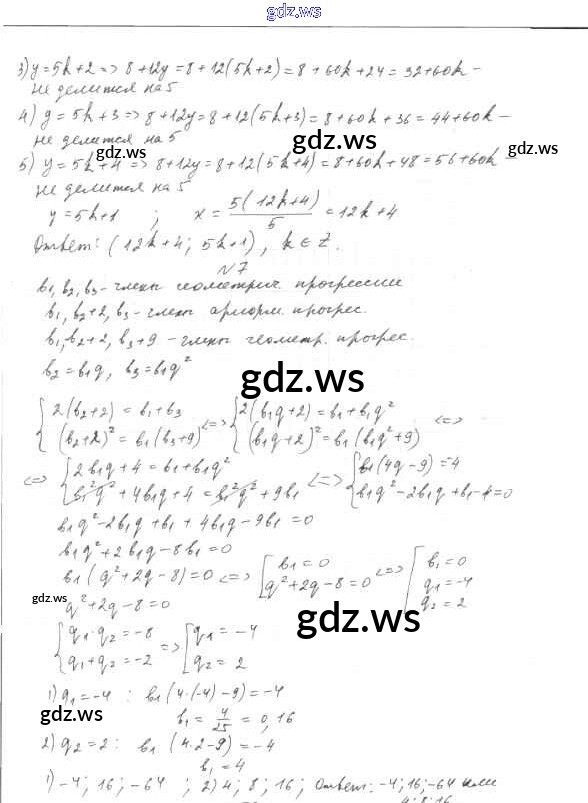 gdz.ws
3) y=5k+2 => 8+12y=8+12(5k+2)=8+60k+24=32+60k-
не делится на 5
4) y=5k+3 => 8+12y=8+12(5k+3)=8+60k+36=44+60k-
не делится на 5
gdz.ws
gdz.ws
5) y=5k+4 => 8+12y=8+12(5k+4)=8+60k+48=56+60k-
не делится на 5
gdz.ws
y=5k+1 ; x = 5(12k+4)/5 = 12k+4
Ответ: (12k+4; 5k+1), k∈Z.
N7
b1, b2, b3 - члены геометрич. прогрессии
b1, b2+2, b3 - члены арифм. прогрес.
b1, b2+2, b3+9 - члены геометр. прогрес.
b2=b1q, b3=b1q²
gdz.ws
{ 2(b2+2)=b1+b3 <=> { 2(b1q+2)=b1+b1q² <=>
(b2+2)²=b1(b3+9) (b1q+2)²=b1(b1q²+9)
<=> { 2b1q+4=b1+b1q² <=> { b1(4q-9)=-4
b1²q²+4b1q+4=b1²q²+9b1 b1q²-2b1q+b1-4=0
b1q²-2b1q+b1+4b1q-9b1=0
b1q²+2b1q-8b1=0
b1(q²+2q-8)=0 <=> [ b1=0 <=> [ b1=0
q²+2q-8=0 q1=-4
q2=2
gdz.ws
q²+2q-8=0
gdz.ws
{ q1·q2=-8 => [ q1=-4
q1+q2=-2 q2=2
1) q1=-4 : b1(4·(-4)-9)=-4
gdz.ws
b1 = 4/25 = 0,16
2) q2=2: b1(4·2-9)=-4
b1=4
gdz.ws
1) -4; 16; -64 ; 2) 4; 8; 16; Ответ: -4; 16; -64 или
4; 8; 16